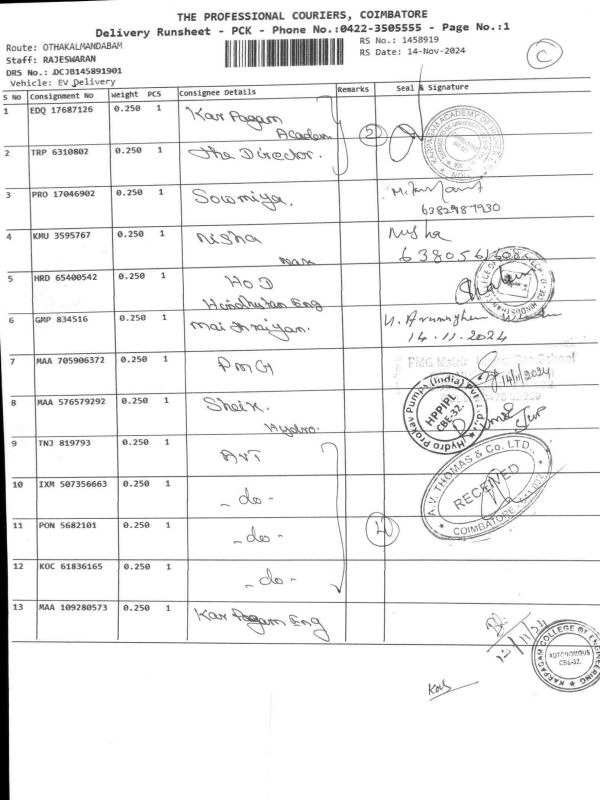 THE PROFESSIONAL COURIERS, COIMBATORE
Delivery Runsheet - PCK - Phone No.:0422-3505555 - Page No.:1
Route: OTHAKALMANDABAM
RS No.: 1458919
Staff: RAJESWARAN
RS Date: 14-Nov-2024
C
DRS No.: DCJB145891901
Vehicle: EV Delivery
S No Consignment No Weight PCS Consignee Details Remarks Seal & Signature
1 EDQ 17687126 0.250 1 Karpagam
Academ
2
2 TRP 6310802 0.250 1 The Director.
3 PRO 17046902 0.250 1 Sowmiya.
6382987930
4 KMU 3595767 0.250 1 Nisha Nisha
5 HRD 65400542 0.250 1 HOD
Hindhustan Eng
6 GMP 834516 0.250 1
14.11.2024
7 MAA 705906372 0.250 1 PMG
14/11/2024
8 MAA 576579292 0.250 1 Sheik.
Hydro.
Hydro Prokav Pumps (India) Pvt. Ltd.,
HPPIPL
CBE-32.
9 TNJ 819793 0.250 1 AVT
A.V. THOMAS & Co. LTD.,
RECEIVED
COIMBATORE
10 IXM 507356663 0.250 1 - do -
11 PON 5682101 0.250 1 - do -
4
12 KOC 61836165 0.250 1 - do -
13 MAA 109280573 0.250 1 Karpagam Eng
KARPAGAM COLLEGE OF ENGINEERING
AUTONOMOUS
CBE-32.